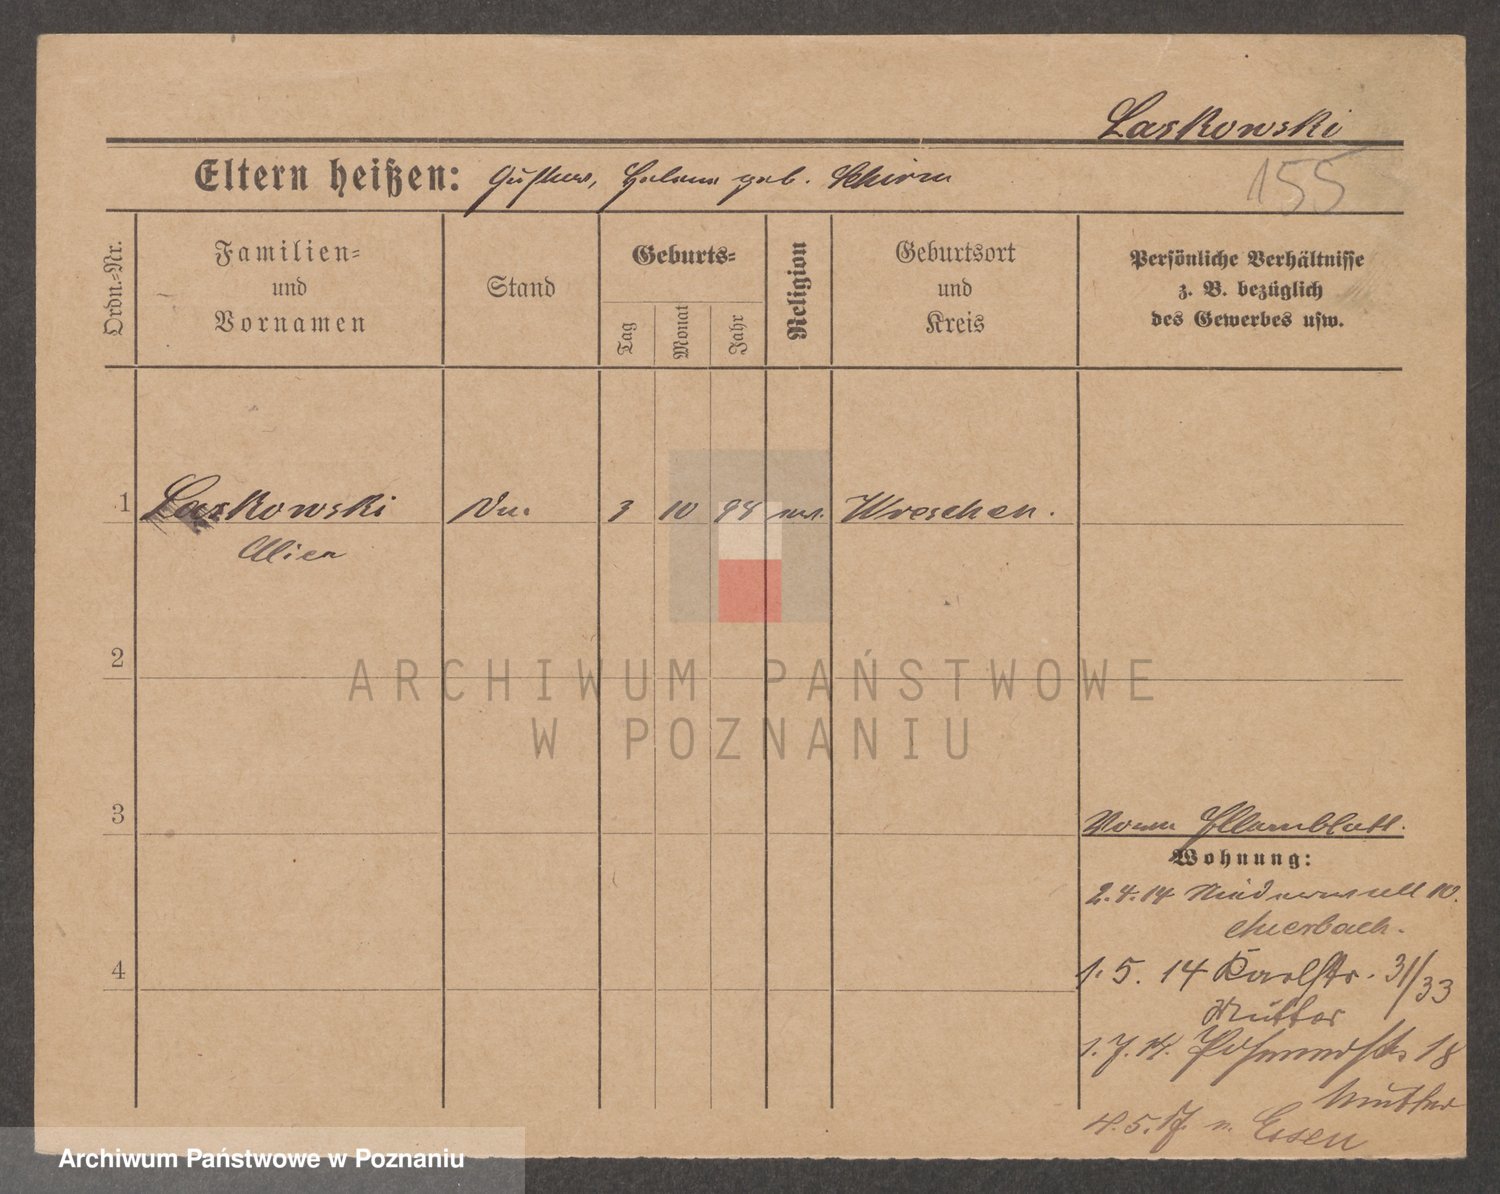 Laskowski
155
Eltern heißen: Gustav, Helene geb. Schirm
Ordn.=Nr.
Familien=
und
Vornamen
Stand
Geburts=
Tag
Monat
Jahr
Religion
Geburtsort
und
Kreis
Persönliche Verhältnisse
z. B. bezüglich
des Gewerbes usw.
1 Laskowski 3 10 98 Wreschen.
2
ARCHIWUM PAŃSTWOWE
W POZNANIU
3
Wohnung:
2.4.14 10.
4
1. 5. 14 Karlstr. 31/33
Mutter
1.7.14. 18
Mutter
4.5.17 n. Essen
Archiwum Państwowe w Poznaniu